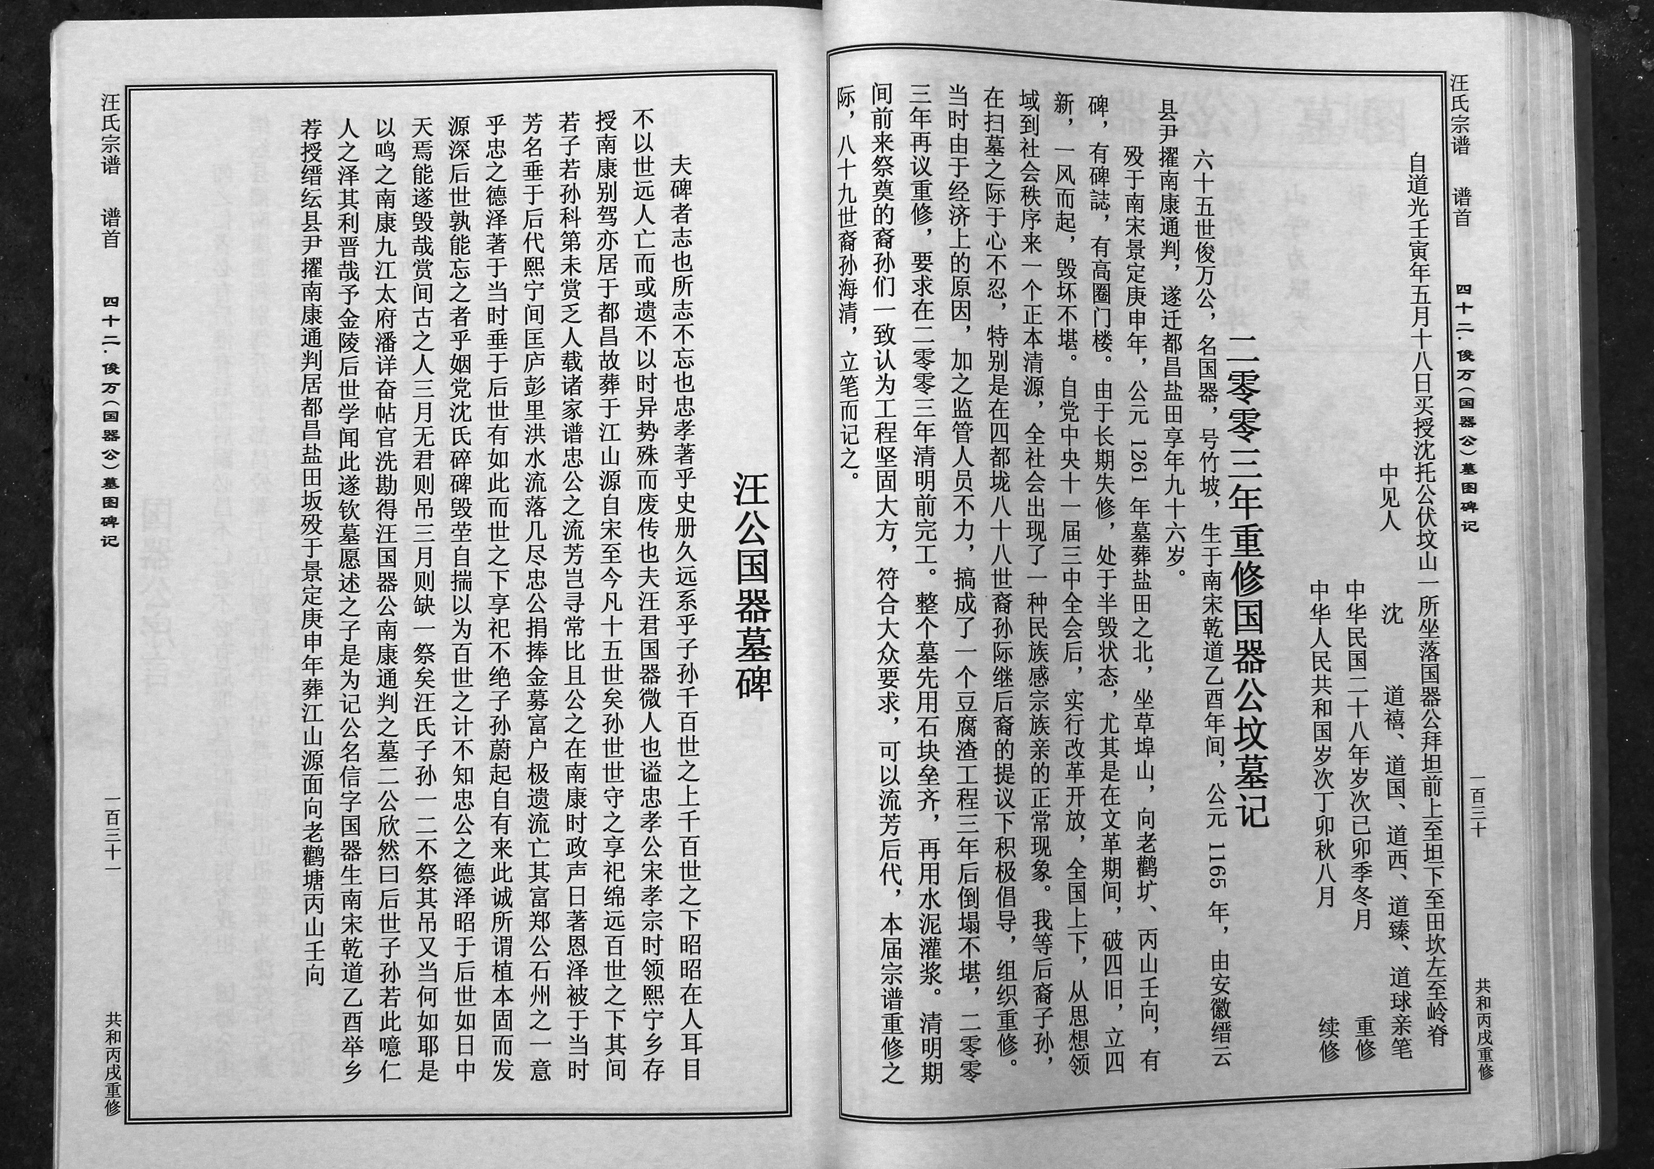 汪氏宗谱 谱首 四十二·俊万（国器公）墓图碑记 一百三十 共和丙戌重修
自道光壬寅年五月十八日买授沈托公伏坟山一所坐落国器公拜坦前上至坦下至田坎左至岭脊
中见人 沈 道禧、道国、道西、道臻、道球亲笔
中华民国二十八年岁次己卯季冬月 重修
中华人民共和国岁次丁卯秋八月 续修
二零零三年重修国器公坟墓记
六十五世俊万公，名国器，号竹坡，生于南宋乾道乙酉年间，公元 1165 年，由安徽缙云
县尹擢南康通判，遂迁都昌盐田享年九十六岁。
殁于南宋景定庚申年，公元 1261 年墓葬盐田之北，坐草埠山，向老鹳圹、丙山壬向，有
碑，有碑誌，有高圈门楼。由于长期失修，处于半毁状态，尤其是在文革期间，破四旧，立四
新，一风而起，毁坏不堪。自党中央十一届三中全会后，实行改革开放，全国上下，从思想领
域到社会秩序来一个正本清源，全社会出现了一种民族感宗族亲的正常现象。我等后裔子孙，
在扫墓之际于心不忍，特别是在四都垅八十八世裔孙际继后裔的提议下积极倡导，组织重修。
当时由于经济上的原因，加之监管人员不力，搞成了一个豆腐渣工程三年后倒塌不堪，二零零
三年再议重修，要求在二零零三年清明前完工。整个墓先用石块垒齐，再用水泥灌浆。清明期
间前来祭奠的裔孙们一致认为工程坚固大方，符合大众要求，可以流芳后代，本届宗谱重修之
际，八十九世裔孙海清，立笔而记之。
汪公国器墓碑
夫碑者志也所志不忘也忠孝著乎史册久远系乎子孙千百世之上千百世之下昭昭在人耳目
不以世远人亡而或遗不以时异势殊而废传也夫汪君国器微人也谥忠孝公宋孝宗时领熙宁乡存
授南康别驾亦居于都昌故葬于江山源自宋至今凡十五世矣孙世世守之享祀绵远百世之下其间
若子若孙科第未赏乏人载诸家谱忠公之流芳岂寻常比且公之在南康时政声日著恩泽被于当时
芳名垂于后代熙宁间匡庐彭里洪水流落几尽忠公捐捧金募富户极遗流亡其富郑公石州之一意
乎忠之德泽著于当时垂于后世有如此而世之下享祀不绝子孙蔚起自有来此诚所谓植本固而发
源深后世孰能忘之者乎姻党沈氏碎碑毁茔自揣以为百世之计不知忠公之德泽昭于后世如日中
天焉能遂毁哉赏间古之人三月无君则吊三月则缺一祭矣汪氏子孙一二不祭其吊又当何如耶是
以鸣之南康九江太府潘详奋帖官洗勘得汪国器公南康通判之墓二公欣然曰后世子孙若此噫仁
人之泽其利晋哉予金陵后世学闻此遂钦墓愿述之子是为记公名信字国器生南宋乾道乙酉举乡
荐授缙纭县尹擢南康通判居都昌盐田坂殁于景定庚申年葬江山源面向老鹳塘丙山壬向
汪氏宗谱 谱首 四十二·俊万（国器公）墓图碑记 一百三十一 共和丙戌重修